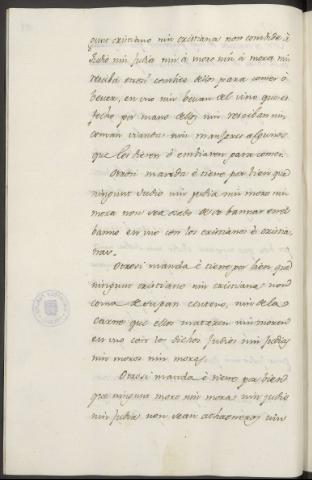 gunt cristiano nin cristiana non combide à
Judio nin Judia nin à moro nin à mora nin
reciba combite dellos para comer ò
bever, en uno nin bevan del vino que es
fecho por mano dellos nin resciban nin
coman viandas nin manjares algunos
que les dieren ò embiaren para comer.
Otrosi manda è tiene por bien que
ningunt Judio nin Judia nin moro nin
mora non sea osado de se bannar en el
banno en uno con los cristianos è cristia
nas.
Otrosi manda è tiene por bien que
ningunt cristiano nin cristiana non
coma de su pan cenceno, nin de la
carne que ellos mataren nin moren
en uno con los dichos Judios nin Judias
nin moros nin moras.
Otrosi manda è tiene por bien
que ningunt moro nin mora nin judio
nin Judia non sean arrendadores nin